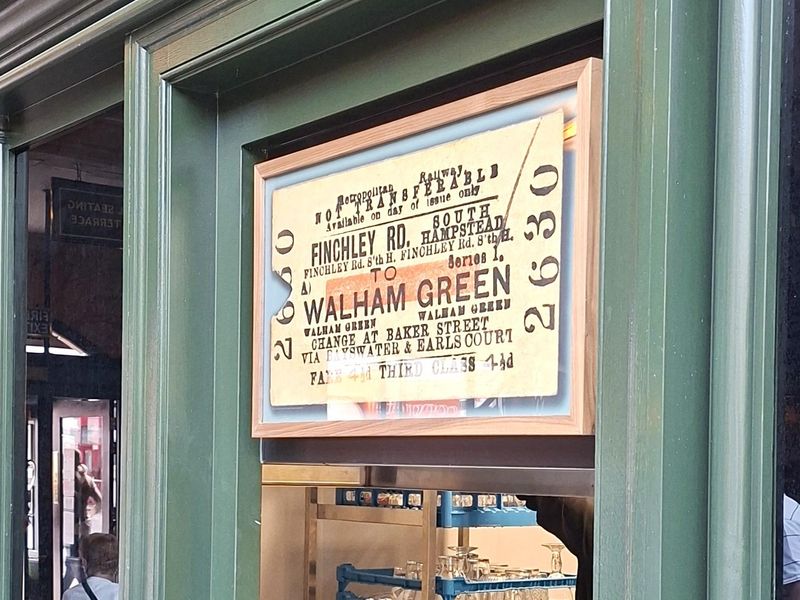 Metropolitan Railway
NOT TRANSFERABLE
Available on day of issue only
FINCHLEY RD. SOUTH HAMPSTEAD
FINCHLEY Rd. S'th H. FINCHLEY Rd. S'th H.
A) TO Series 1.
WALHAM GREEN
WALHAM GREEN WALHAM GREEN
CHANGE AT BAKER STREET
VIA BAYSWATER & EARLS COURT
FARE 4½d THIRD CLASS 4½d
2630
2630
SEATING
TERRACE
FIRE
EXIT